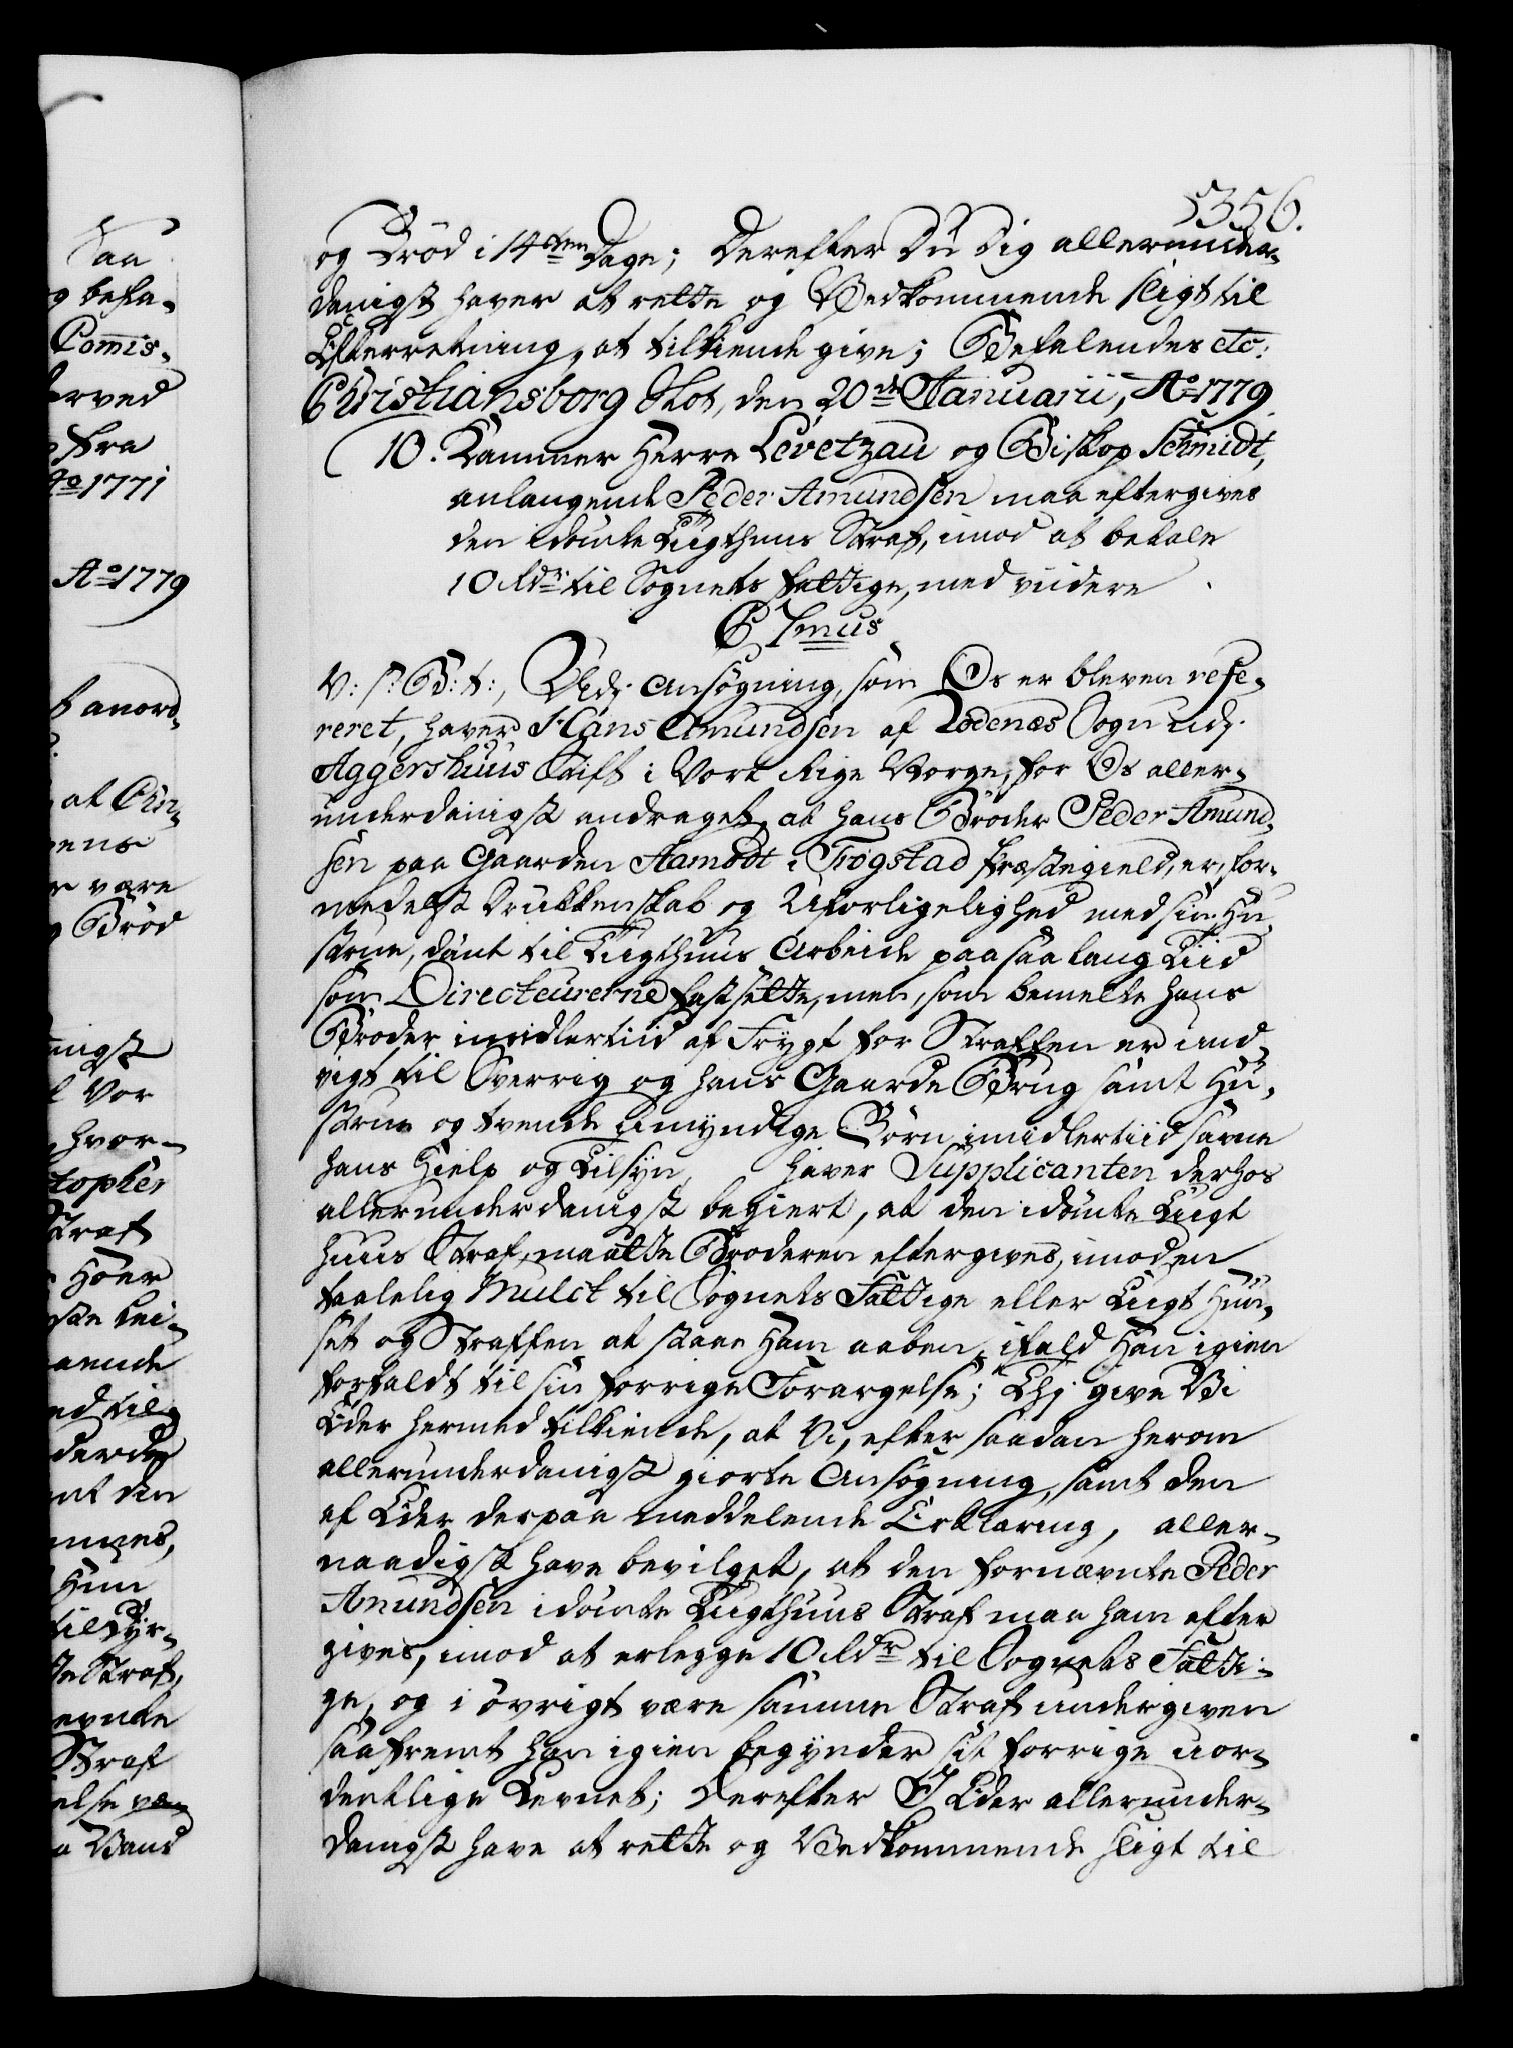 356.
og Brød i 14ten Dage; Derefter Du Dig allerunder-
danigst haver at rette og Vedkommende sligt til
Efterretning, at tilkiende give; Befalendes etc:
Christiansborg Slot, den 20de Januarii, Ao 1779.
10. Kammer Herre Levetzau og Biskop Schmidt,
anlangende Peder Amundsen maa eftergives
den idømte Tugthuus Straf, imod at betale
10 Rdr til Sognets Fattige, med viidere
C 7mus
V: s: G: t:, Udj Ansøgning, som Os er bleven refe-
reret, haver Hans Amundsen af Rødenæs Sogn udj
Aggershuus Stift i Vort Rige Norge, for Os aller-
underdanigst andraget, at hans Broder Peder Amund-
sen paa Gaarden Aamodt i Trøgstad Præstegield, er, for-
medelst Drukkenskab og Uforligelighed med sin Hu-
strue, dømt til Tugthuus Arbeide paa saa lang Tiid
som Directeurerne fastsætte, men, som bemelte hans
Broder imidlertiid af Frygt for Straffen er und-
vigt til Sverrig og hans Gaarde Brug samt Hu-
strue og tvende umyndige Børn imidlertiid savne
hans Hielp og Tilsyn, haver Supplicanten derhos
allerunderdanigst begiert, at den idømte Tugt
huus Straf, maatte Broderen eftergives, imod en
taalelig Mulct til Sognets Fattige eller Tugt Huu-
set og Straffen at staae Ham aaben, ifald Han igien
forfaldt til sin forrige Forargelse; Thj give Vi
Eder hermed tilkiende, at Vi, efter saadan herom
allerunderdanigst giorte Ansøgning, samt den
af Eder derpaa meddelende Erklæring, aller-
naadigst have bevilget, at den fornævnte Peder
Amundsen idømte Tugthuus Straf maa ham efter
gives, imod at erlegge 10 Rdr til Sognets Fatti-
ge, og i øvrigt være samme Straf undergiven
saafremt han igien begynder sit forrige uor-
dentlige Levnet; Derefter I Eder allerunder-
danigst have at rette og Vedkommende sligt til